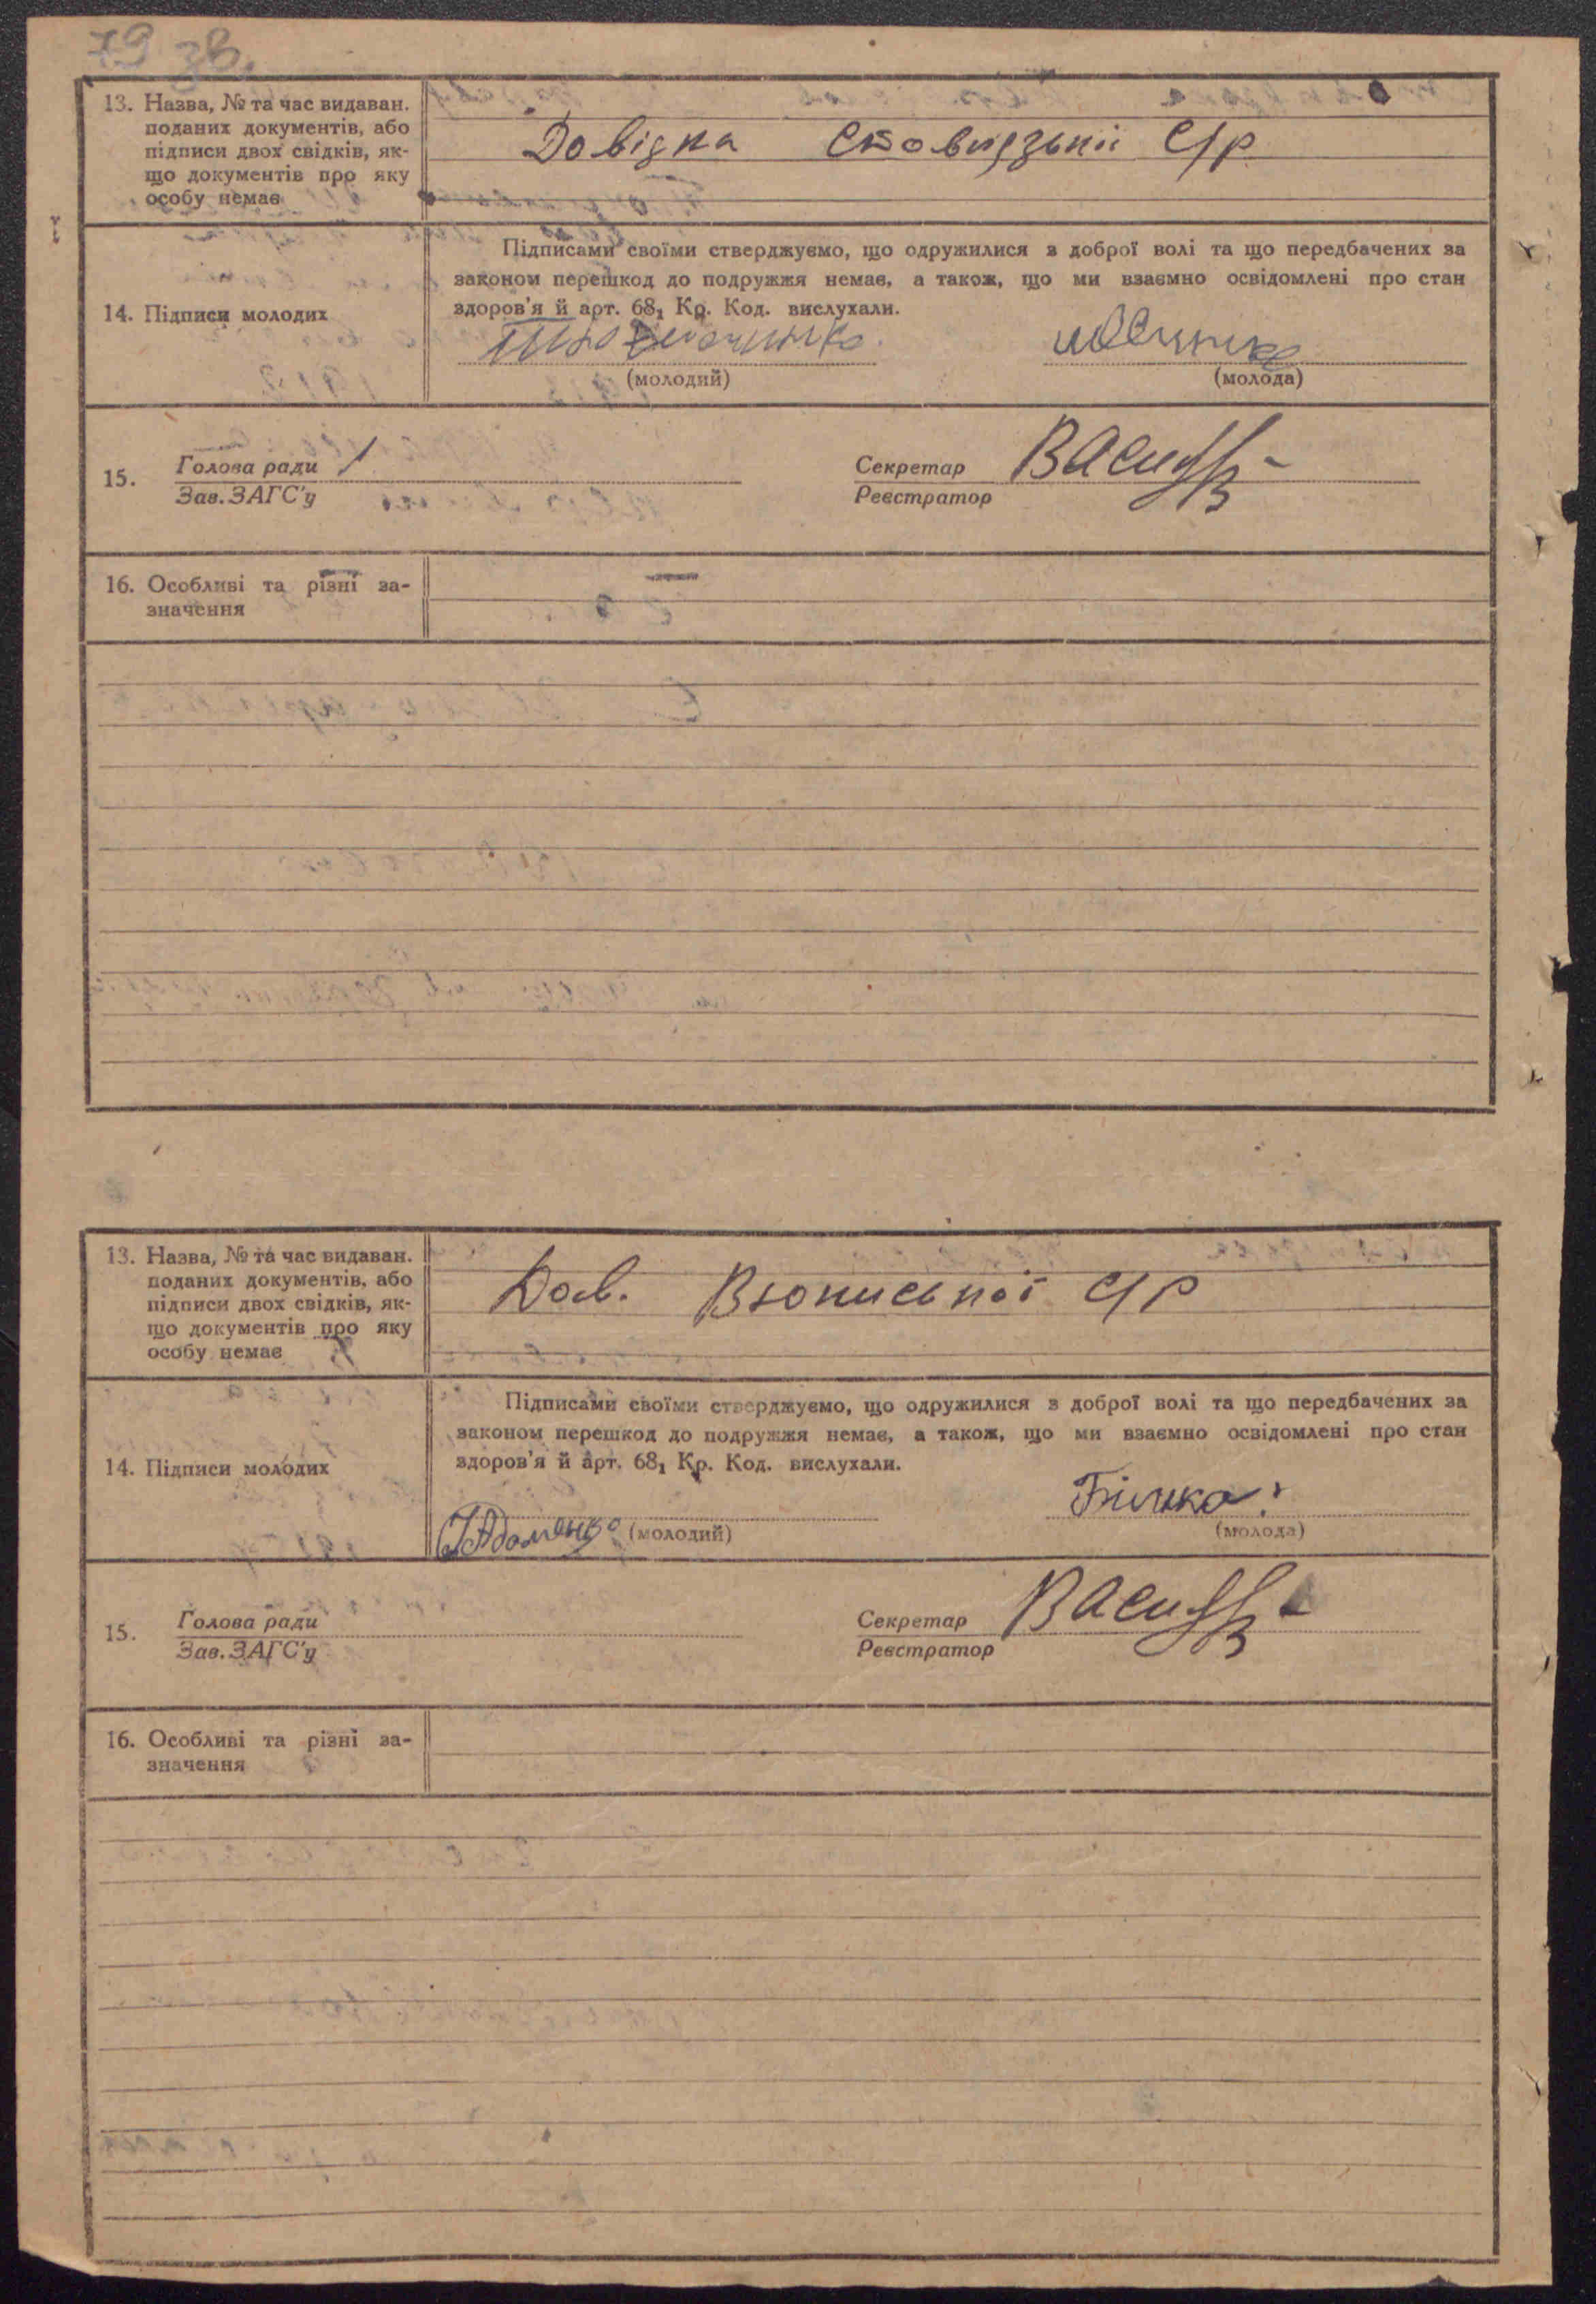 79 зв.
13. Назва, № та час видаван.
поданих документів, або
підписи двох свідків, як-
що документів про яку
особу немає
Довідка С/р
Підписами своїми стверджуємо, що одружилися з доброї волі та що передбачених за
законом перешкод до подружжя немає, а також, що ми взаємно освідомлені про стан
здоров'я й арт. 68₁ Кр. Код. вислухали.
14. Підписи молодих
(молодий) (молода)
15. Голова ради Секретар
Зав. ЗАГС'у Реєстратор
16. Особливі та різні за-
значення
13. Назва, № та час видаван.
поданих документів, або
підписи двох свідків, як-
що документів про яку
особу немає
Дов. С/р
Підписами своїми стверджуємо, що одружилися з доброї волі та що передбачених за
законом перешкод до подружжя немає, а також, що ми взаємно освідомлені про стан
здоров'я й арт. 68₁ Кр. Код. вислухали.
14. Підписи молодих
Адаменко (молодий) (молода)
15. Голова ради Секретар
Зав. ЗАГС'у Реєстратор
16. Особливі та різні за-
значення